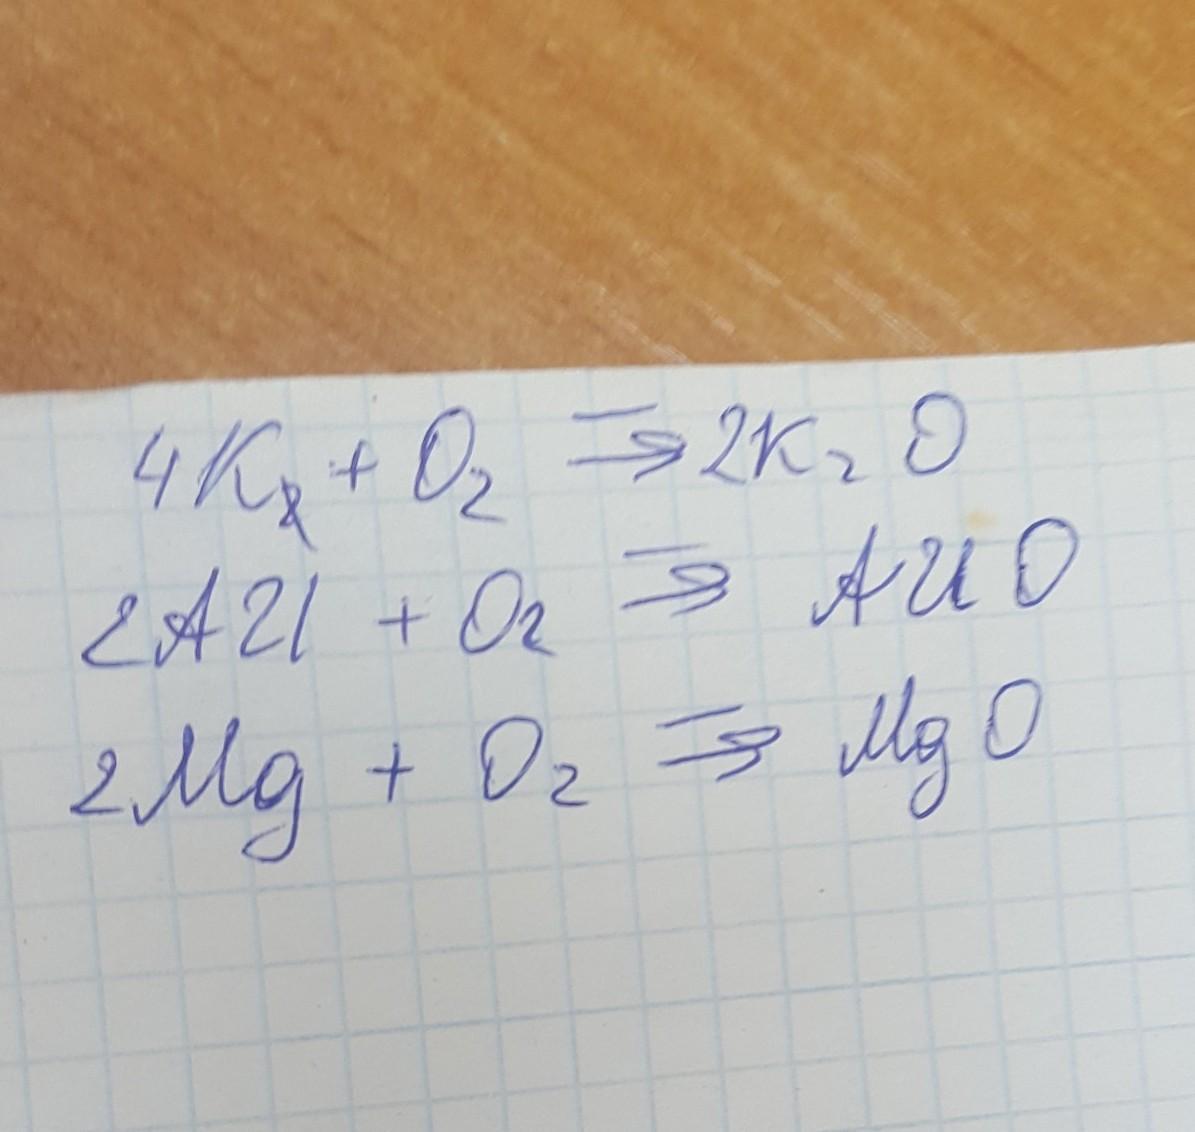 4K + O₂ ⇒ 2K₂O
2Al + O₂ ⇒ AlO
2Mg + O₂ ⇒ MgO